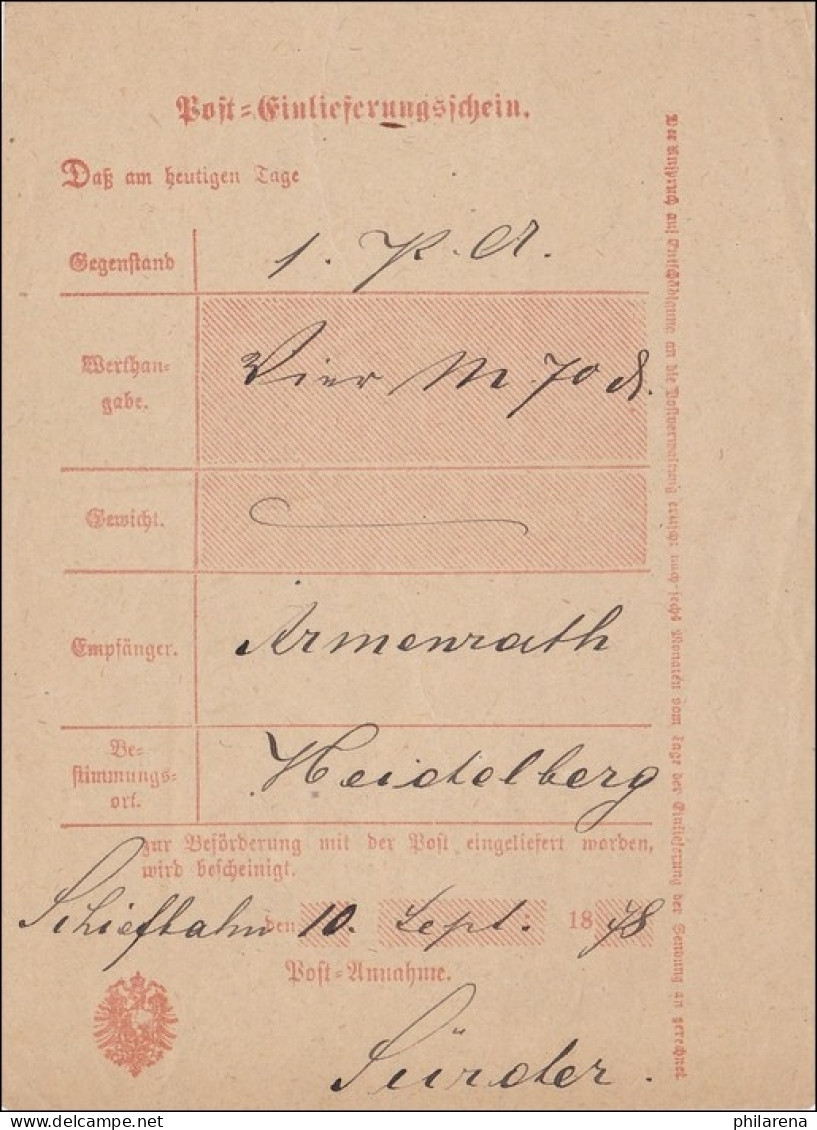 Post=Einlieferungsschein.
Daß am heutigen Tage
Gegenstand 1. P. A.
Werthan=
gabe. Vier M. 70 ₰.
Gewicht.
Empfänger. Armenrath
Be=
stimmungs=
ort. Heidelberg
zur Beförderung mit der Post eingeliefert worden,
wird bescheinigt.
Schiefbahn den 10. Sept. 1878
Post=Annahme.
Sürder.
Der Anspruch auf Entschädigung an die Postverwaltung erlischt nach sechs Monaten vom Tage der Einlieferung der Sendung an gerechnet.
philarena